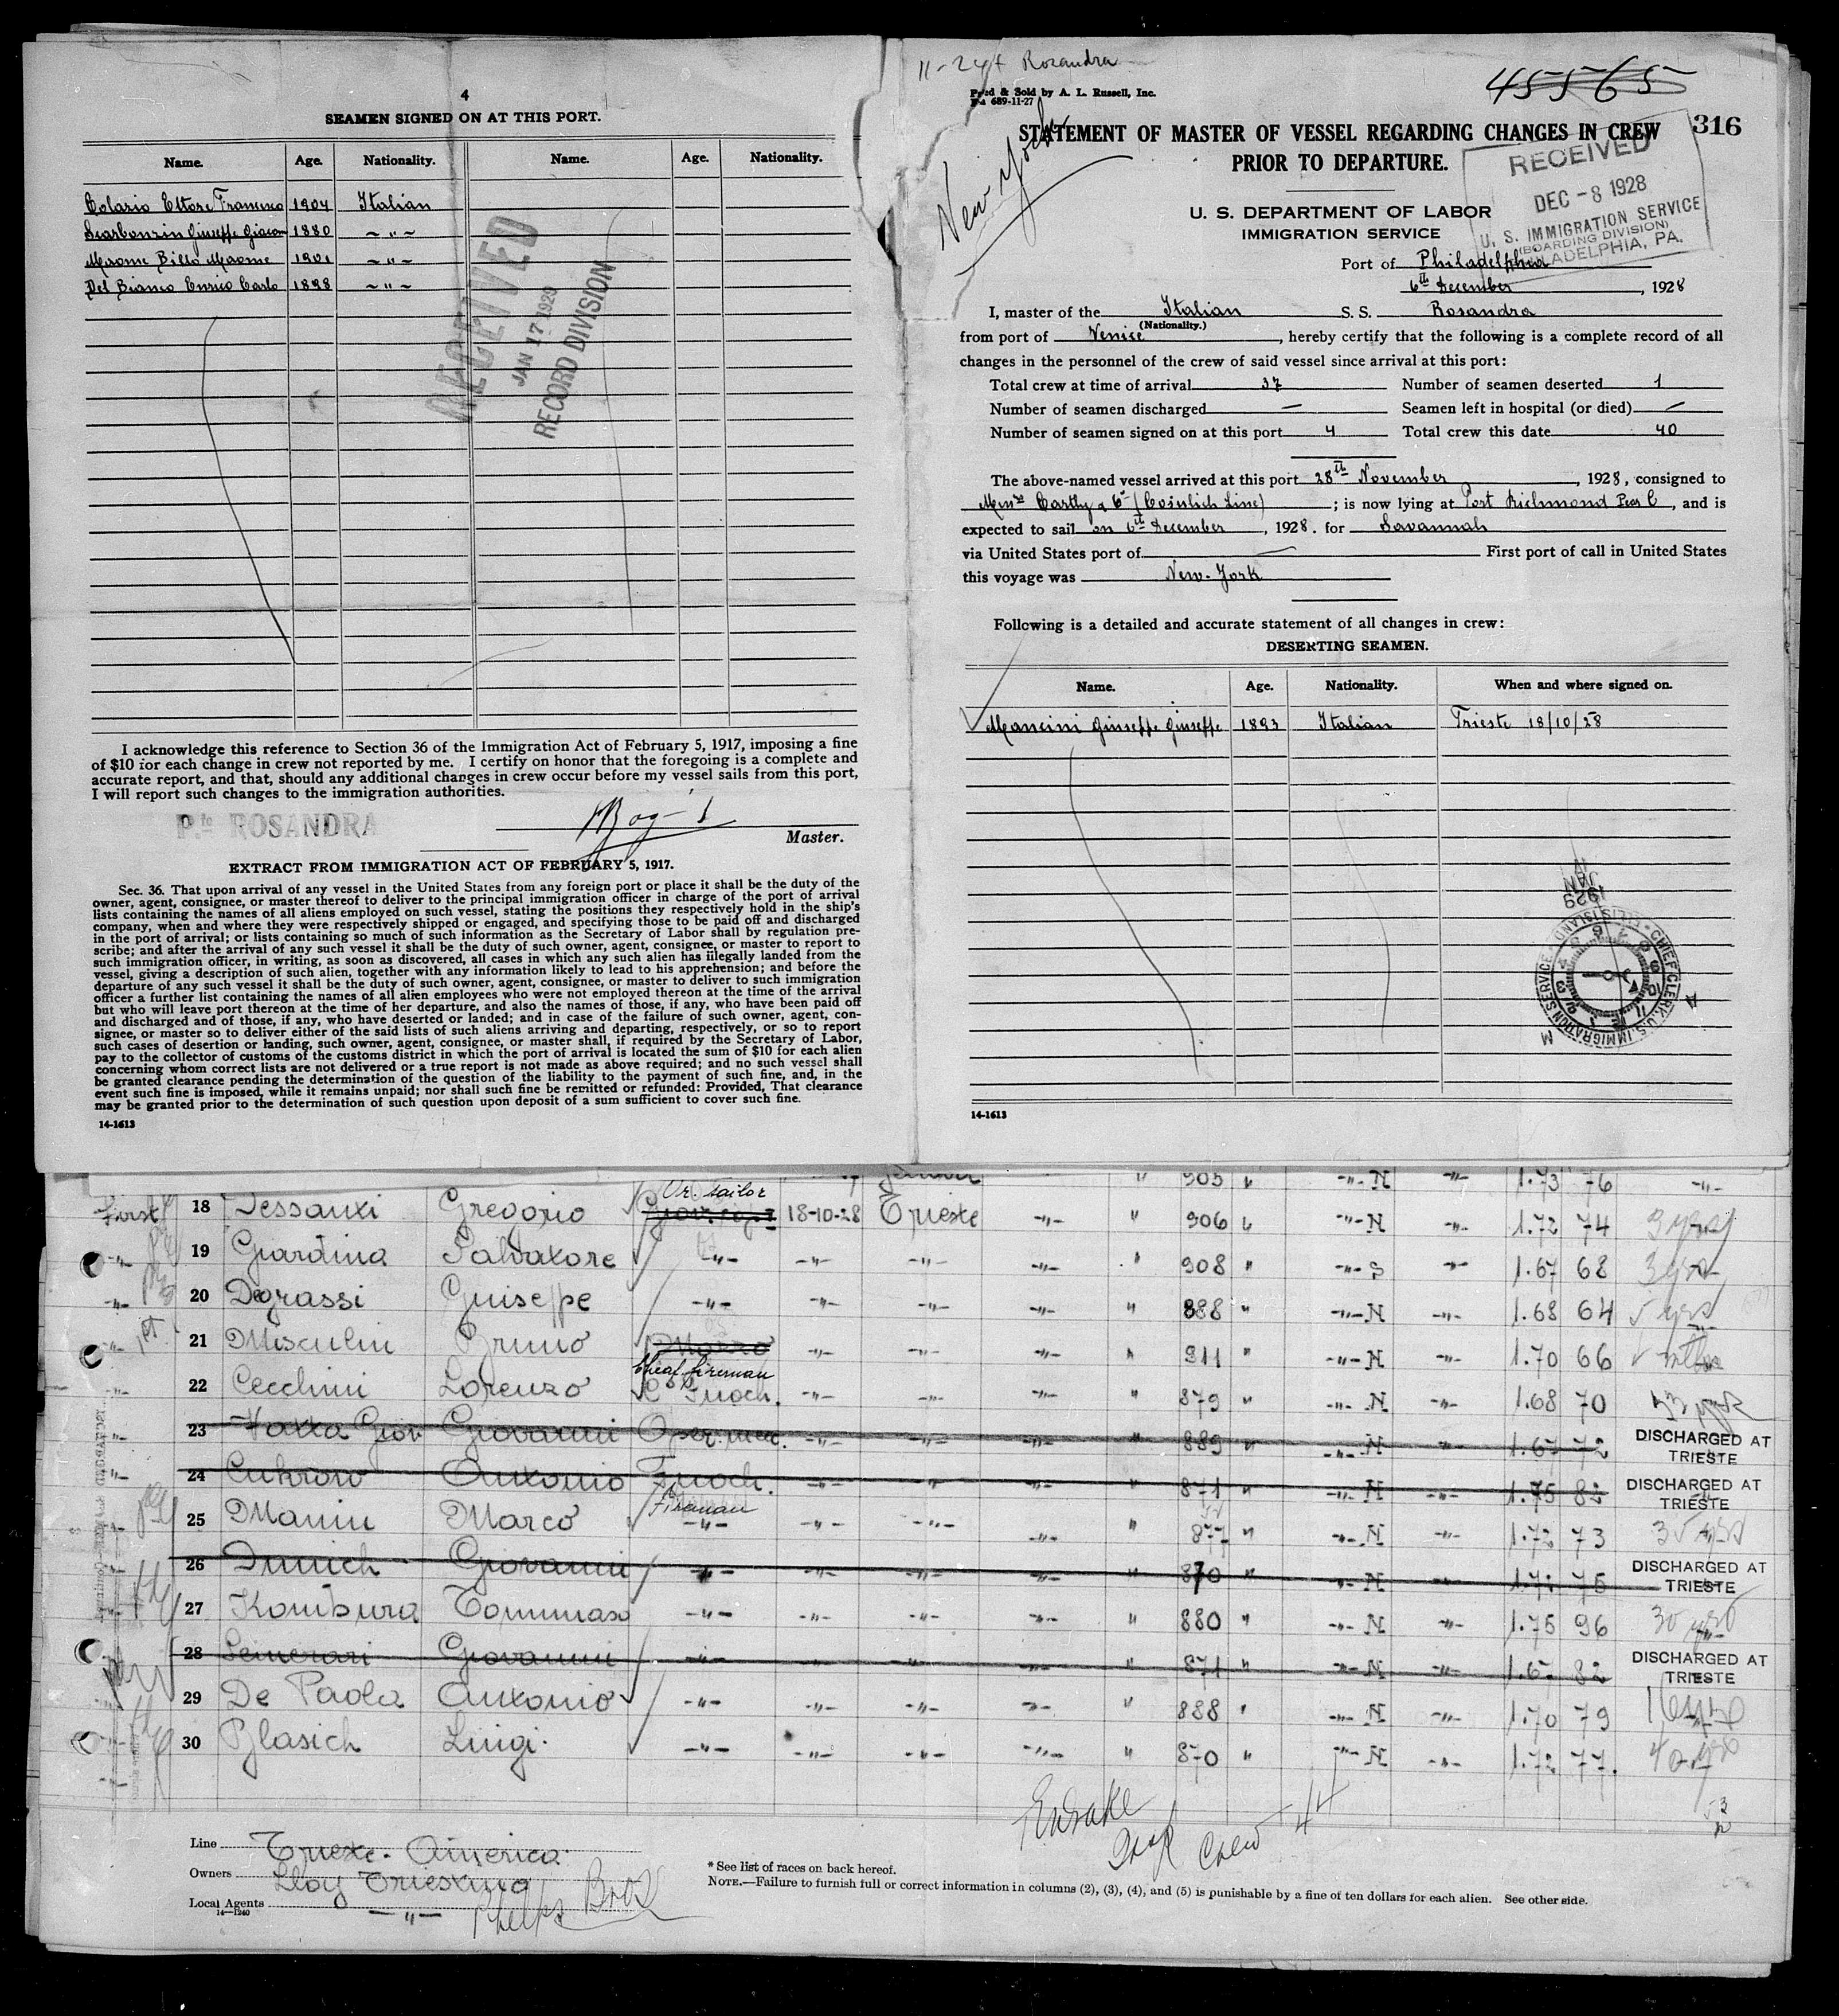 4
SEAMEN SIGNED ON AT THIS PORT.
Name. Age. Nationality. Name. Age. Nationality.
Colario Ettore Francesco 1904 Italian
Scarbonzin Giuseppe Giacom 1880 ~ " ~
1901 ~ " ~
Del Bianco Enrico Carlo 1898 ~ " ~
RECEIVED
JAN 17 1929
RECORD DIVISION
I acknowledge this reference to Section 36 of the Immigration Act of February 5, 1917, imposing a fine
of $10 for each change in crew not reported by me. I certify on honor that the foregoing is a complete and
accurate report, and that, should any additional changes in crew occur before my vessel sails from this port,
I will report such changes to the immigration authorities.
P.fo ROSANDRA
Master.
EXTRACT FROM IMMIGRATION ACT OF FEBRUARY 5, 1917.
Sec. 36. That upon arrival of any vessel in the United States from any foreign port or place it shall be the duty of the
owner, agent, consignee, or master thereof to deliver to the principal immigration officer in charge of the port of arrival
lists containing the names of all aliens employed on such vessel, stating the positions they respectively hold in the ship's
company, when and where they were respectively shipped or engaged, and specifying those to be paid off and discharged
in the port of arrival; or lists containing so much of such information as the Secretary of Labor shall by regulation pre-
scribe; and after the arrival of any such vessel it shall be the duty of such owner, agent, consignee, or master to report to
such immigration officer, in writing, as soon as discovered, all cases in which any such alien has illegally landed from the
vessel, giving a description of such alien, together with any information likely to lead to his apprehension; and before the
departure of any such vessel it shall be the duty of such owner, agent, consignee, or master to deliver to such immigration
officer a further list containing the names of all alien employees who were not employed thereon at the time of the arrival
but who will leave port thereon at the time of her departure, and also the names of those, if any, who have been paid off
and discharged and of those, if any, who have deserted or landed; and in case of the failure of such owner, agent, con-
signee, or master so to deliver either of the said lists of such aliens arriving and departing, respectively, or so to report
such cases of desertion or landing, such owner, agent, consignee, or master shall, if required by the Secretary of Labor,
pay to the collector of customs of the customs district in which the port of arrival is located the sum of $10 for each alien
concerning whom correct lists are not delivered or a true report is not made as above required; and no such vessel shall
be granted clearance pending the determination of the question of the liability to the payment of such fine, and, in the
event such fine is imposed, while it remains unpaid; nor shall such fine be remitted or refunded: Provided, That clearance
may be granted prior to the determination of such question upon deposit of a sum sufficient to cover such fine.
14-1613
Rosandra
45565
Sold by A. L. Russell, Inc.
689-11-27
New York
316
STATEMENT OF MASTER OF VESSEL REGARDING CHANGES IN CREW
PRIOR TO DEPARTURE.
RECEIVED
DEC - 8 1928
U. S. IMMIGRATION SERVICE
(BOARDING DIVISION)
PHILADELPHIA, PA.
U. S. DEPARTMENT OF LABOR
IMMIGRATION SERVICE
Port of Philadelphia
6th December , 1928
I, master of the Italian S. S. Rosandra
(Nationality.)
from port of Venice , hereby certify that the following is a complete record of all
changes in the personnel of the crew of said vessel since arrival at this port:
Total crew at time of arrival 37 Number of seamen deserted 1
Number of seamen discharged — Seamen left in hospital (or died) —
Number of seamen signed on at this port 4 Total crew this date 40
The above-named vessel arrived at this port 28th November , 1928, consigned to
Carthy & Co (Cosulich Line) ; is now lying at Port Richmond Pear C , and is
expected to sail on 6th December , 1928. for Savannah
via United States port of — First port of call in United States
this voyage was New-York
Following is a detailed and accurate statement of all changes in crew:
DESERTING SEAMEN.
Name. Age. Nationality. When and where signed on.
Mancini Giuseppe Giuseppe 1893 Italian Trieste 18/10/28
JAN
1929
CHIEF CLERK U.S. IMMIGRATION SERVICE ELLIS ISLAND
14-1613
905 " -"- N -"- 1.73 76 -"-
Or. sailor
First 18 Dessanti Gregorio 18-10-28 Trieste -"- " 906 " -"- N -"- 1.72 74 9 yrs
-"- 19 Giardina Salvatore -"- -"- -"- -"- " 908 " -"- S -"- 1.67 68 3 yrs
-"- 20 Degrassi Guiseppe -"- -"- -"- -"- " 888 " -"- N -"- 1.68 64 5 yrs
21 Misculin Bruno Mozzo -"- -"- -"- " 911 " -"- N -"- 1.70 66
Cheaf fireman
-"- 22 Cecchini Lorenzo C Fuoch. -"- -"- -"- " 879 " -"- N -"- 1.68 70
-"- 23 Giovanni Oper. mec. -"- -"- -"- " 889 " -"- N -"- 1.67 72 DISCHARGED AT
TRIESTE
-"- 24 Antonio Fuoch. -"- -"- -"- " 871 " -"- N -"- 1.75 82 DISCHARGED AT
TRIESTE
Fireman
25 Manin Marco -"- -"- -"- -"- " 877 " -"- N -"- 1.72 73 35 yrs
26 Dunich Giovanni -"- -"- -"- -"- " 870 " -"- N -"- 75 DISCHARGED AT
TRIESTE
27 Kombura Tommaso -"- -"- -"- -"- " 880 " -"- N -"- 1.75 96 30 yrs
28 Semerari Giovanni -"- -"- -"- -"- " 871 " -"- N -"- 82 DISCHARGED AT
TRIESTE
29 De Paola Antonio -"- -"- -"- -"- " 888 " -"- N -"- 1.70 79
30 Blasich Luigi. -"- -"- -"- -"- " 870 " -"- N -"- 1.72 77.
Crew 44
Line Trieste. America.
Owners Lloy Triestino
Local Agents -"- Phelps Bros
14-1240
* See list of races on back hereof.
NOTE.—Failure to furnish full or correct information in columns (2), (3), (4), and (5) is punishable by a fine of ten dollars for each alien. See other side.